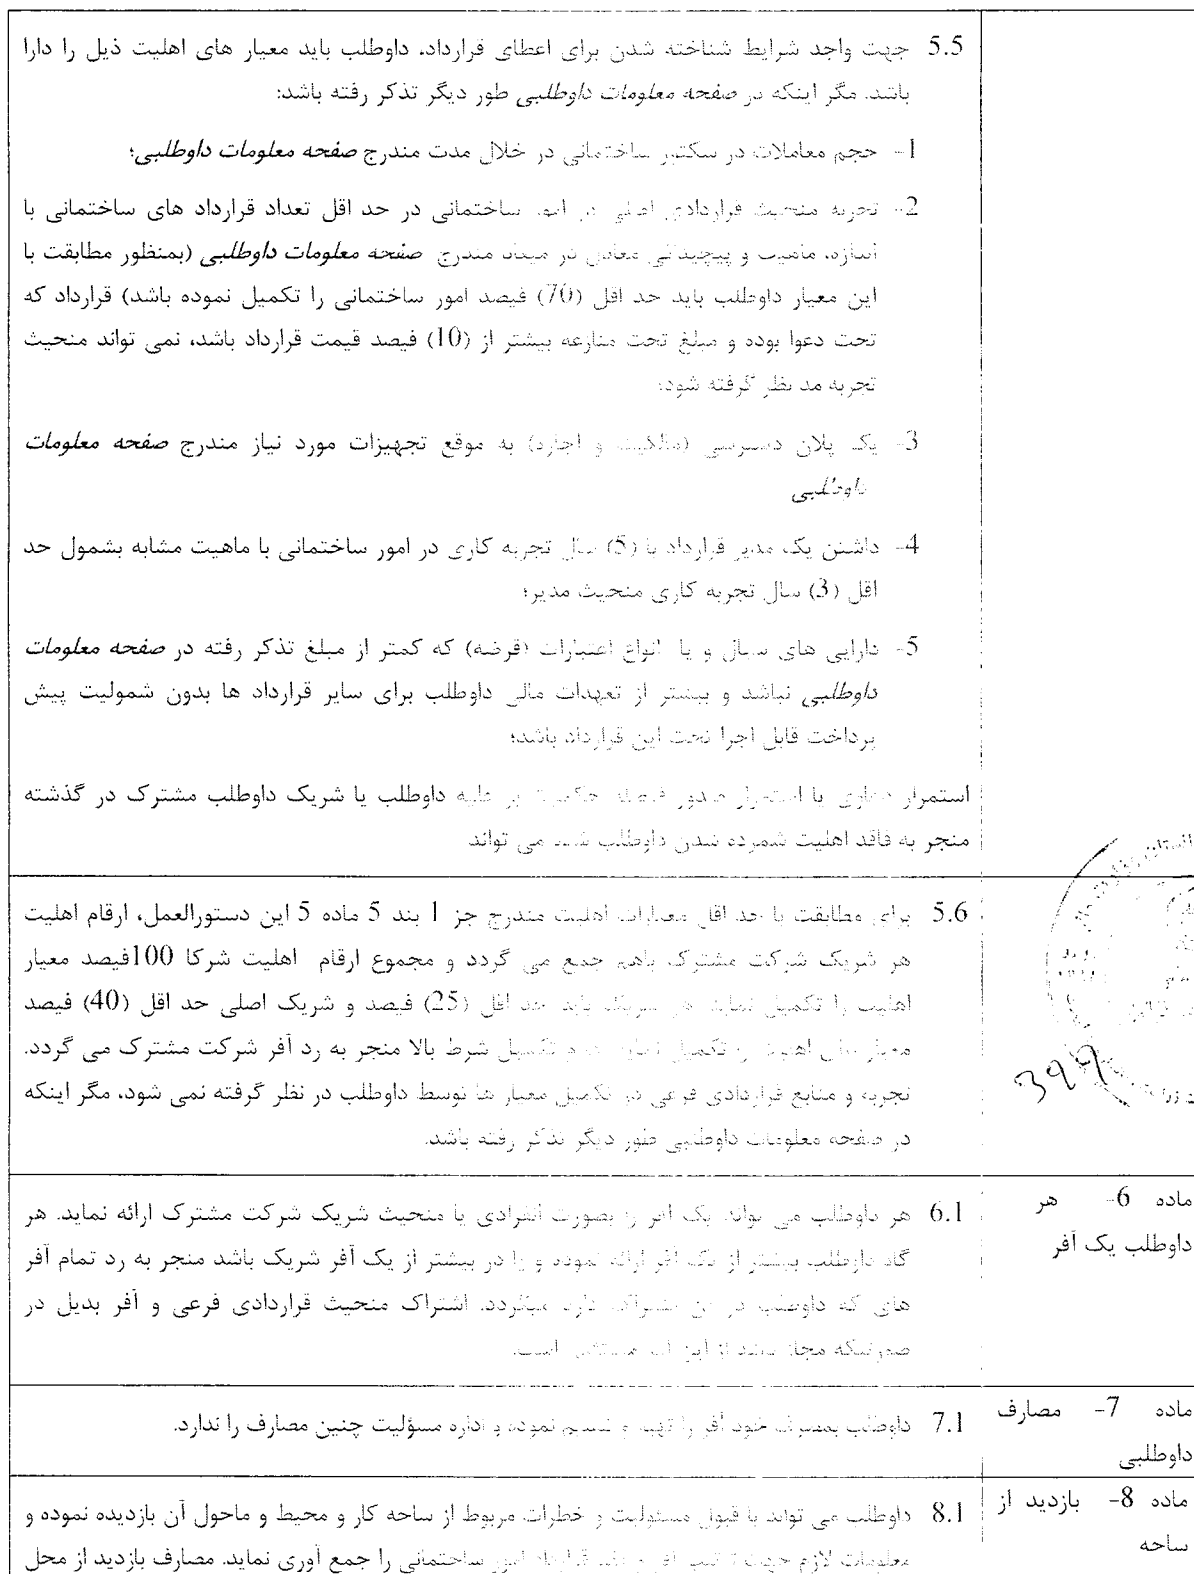 5.5 جهت واجد شرایط شناخته شدن برای اعطای قرارداد، داوطلب باید معیار های اهلیت ذیل را دارا
باشد. مگر اینکه در صفحه معلومات داوطلبی طور دیگر تذکر رفته باشد:
1- حجم معاملات در سکتور ساختمانی در خلال مدت مندرج صفحه معلومات داوطلبی؛
2- تجربه منحیث قراردادی اصلی در امور ساختمانی در حد اقل تعداد قرارداد های ساختمانی با
اندازه، ماهیت و پیچیدگی معادل در میعاد مندرج صفحه معلومات داوطلبی (بمنظور مطابقت با
این معیار داوطلب باید حد اقل (70) فیصد امور ساختمانی را تکمیل نموده باشد) قرارداد که
تحت دعوا بوده و مبلغ تحت منازعه بیشتر از (10) فیصد قیمت قرارداد باشد، نمی تواند منحیث
تجربه مد نظر گرفته شود؛
3- یک پلان دسترسی (مالکیت و اجاره) به موقع تجهیزات مورد نیاز مندرج صفحه معلومات
داوطلبی
4- داشتن یک مدیر قرارداد با (5) سال تجربه کاری در امور ساختمانی با ماهیت مشابه بشمول حد
اقل (3) سال تجربه کاری منحیث مدیر؛
5- دارایی های سیال و یا انواع اعتبارات (قرضه) که کمتر از مبلغ تذکر رفته در صفحه معلومات
داوطلبی نباشد و بیشتر از تعهدات مالی داوطلب برای سایر قرارداد ها بدون شمولیت پیش
پرداخت قابل اجرا تحت این قرارداد باشد؛
استمرار دعاوی یا استمرار صدور فیصله بر علیه داوطلب یا شریک داوطلب مشترک در گذشته
منجر به فاقد اهلیت شمرده شدن داوطلب شده می تواند
5.6 برای مطابقت با حد اقل معیارات اهلیت مندرج جز 1 بند 5 ماده 5 این دستورالعمل، ارقام اهلیت
هر شریک شرکت مشترک باهم جمع می گردد و مجموع ارقام اهلیت شرکا 100فیصد معیار
اهلیت را تکمیل نماید. هر شریک باید حد اقل (25) فیصد و شریک اصلی حد اقل (40) فیصد
معیار های اهلیت را تکمیل نماید. عدم تکمیل شرط بالا منجر به رد آفر شرکت مشترک می گردد.
تجربه و منابع قراردادی فرعی در تکمیل معیار ها توسط داوطلب در نظر گرفته نمی شود، مگر اینکه
در صفحه معلومات داوطلبی طور دیگر تذکر رفته باشد.
399
ماده 6- هر
داوطلب یک آفر
6.1 هر داوطلب می تواند یک آفر را بصورت انفرادی یا منحیث شریک شرکت مشترک ارائه نماید. هر
گاه داوطلب بیشتر از یک آفر ارائه نموده و یا در بیشتر از یک آفر شریک باشد منجر به رد تمام آفر
های که داوطلب در آن اشتراک دارد میگردد. اشتراک منحیث قراردادی فرعی و آفر بدیل در
صورتیکه مجاز باشد از این امر مستثنی است.
ماده 7- مصارف
داوطلبی
7.1 داوطلب بمصرف خود آفر را تهیه و تسلیم نموده و اداره مسؤلیت چنین مصارف را ندارد.
ماده 8- بازدید از
ساحه
8.1 داوطلب می تواند با قبول مسئولیت و خطرات مربوط از ساحه کار و محیط و ماحول آن بازدیده نموده و
معلومات لازم جهت ترتیب آفر و عقد قرارداد امور ساختمانی را جمع آوری نماید. مصارف بازدید از محل